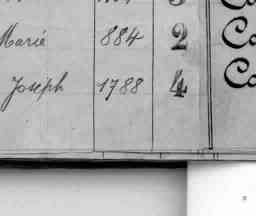 Marie 884 2 Co
Joseph 1788 4 Co